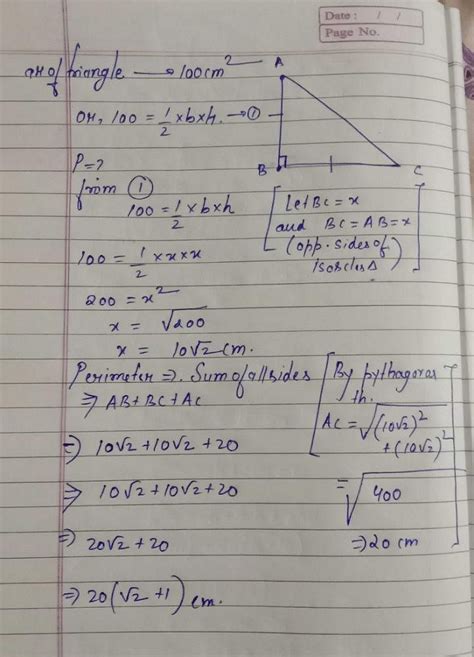 Date : / /
Page No.
ar of triangle → 100cm²
A
or, 100 = 1/2 × b × h. → ①
P = ?
B
C
from ①
100 = 1/2 × b × h
[Let BC = x
and BC = AB = x
(opp. sides of
isosclesΔ)]
100 = 1/2 × x × x
200 = x²
x = √200
x = 10√2 cm.
Perimeter ⇒ Sum of all sides
⇒ AB + BC + AC
[By pythagoras
th.
AC = √(10√2)²
+ (10√2)²]
⇒ 10√2 + 10√2 + 20
⇒ 10√2 + 10√2 + 20
= √400
⇒ 20√2 + 20
⇒ 20 cm
⇒ 20(√2 + 1) cm.